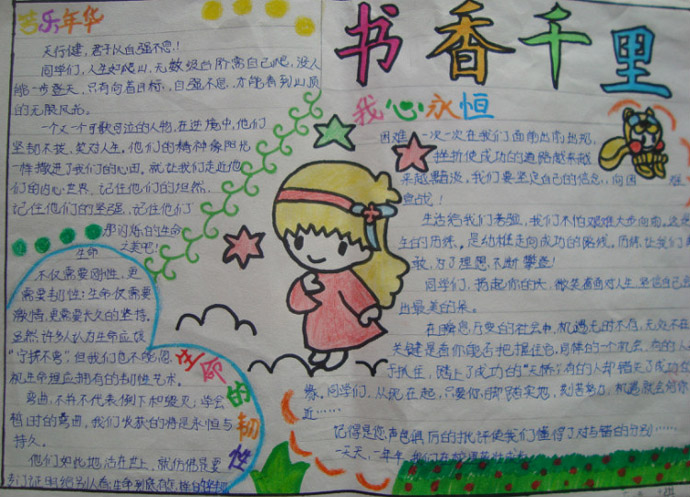 音乐年华
天行健,君子以自强不息!
同学们,人生如爬山,无数级台阶需自己爬,没人
能一步登天,只有向着目标,自强不息,才能看到山顶
的无限风光。
一个又一个可歌可泣的人物,在逆境中,他们
坚韧不拔,笑对人生,他们的精神像阳光
一样撒进了我们的心田,就让我们走近他
们的内心世界,记住他们的坦然,
记住他们的坚强,记住他们
那闪烁的生命
之美吧!
生命
不仅需要刚性,更
需要韧性;生命仅需要
激情,更需要长久的坚持。
虽然许多人认为生命应该
“宁折不弯”但我们也不能忽
视生命理应拥有的韧性艺术。
弯曲,不并不代表倒下和毁灭;学会
暂时的弯曲,我们收获的将是永恒与
持久。
他们如此地活在世上,就仿佛是要
生命的韧性
书香千里
我心永恒
困难一次一次在我们面前出前出现,
挫折使成功的道路越来越
来越黯淡,我们要坚定自己的信念,向困难
宣战!
生活给我们考验,我们不怕艰难大步向前,这
生的历练,是幼稚走向成功的路线,历练让我们
敢,为了理想,不断攀登!
同学们,扬起你的头,微笑着面对人生,坚信自己
出最美的来。
在瞬息万变的社会中,机遇无时不在,无处不在
关键是看你能否把握住它,同样的一个机会,有的人
于抓住,踏上了成功的“天桥”;有的人却错失了成功的
缘。同学们,从现在起,只要你脚踏实地,刻苦努力,机遇就会向你
近……
记得是您,声色俱厉的批评使我们懂得了对与错的分别……
一天天,一年年,我们在